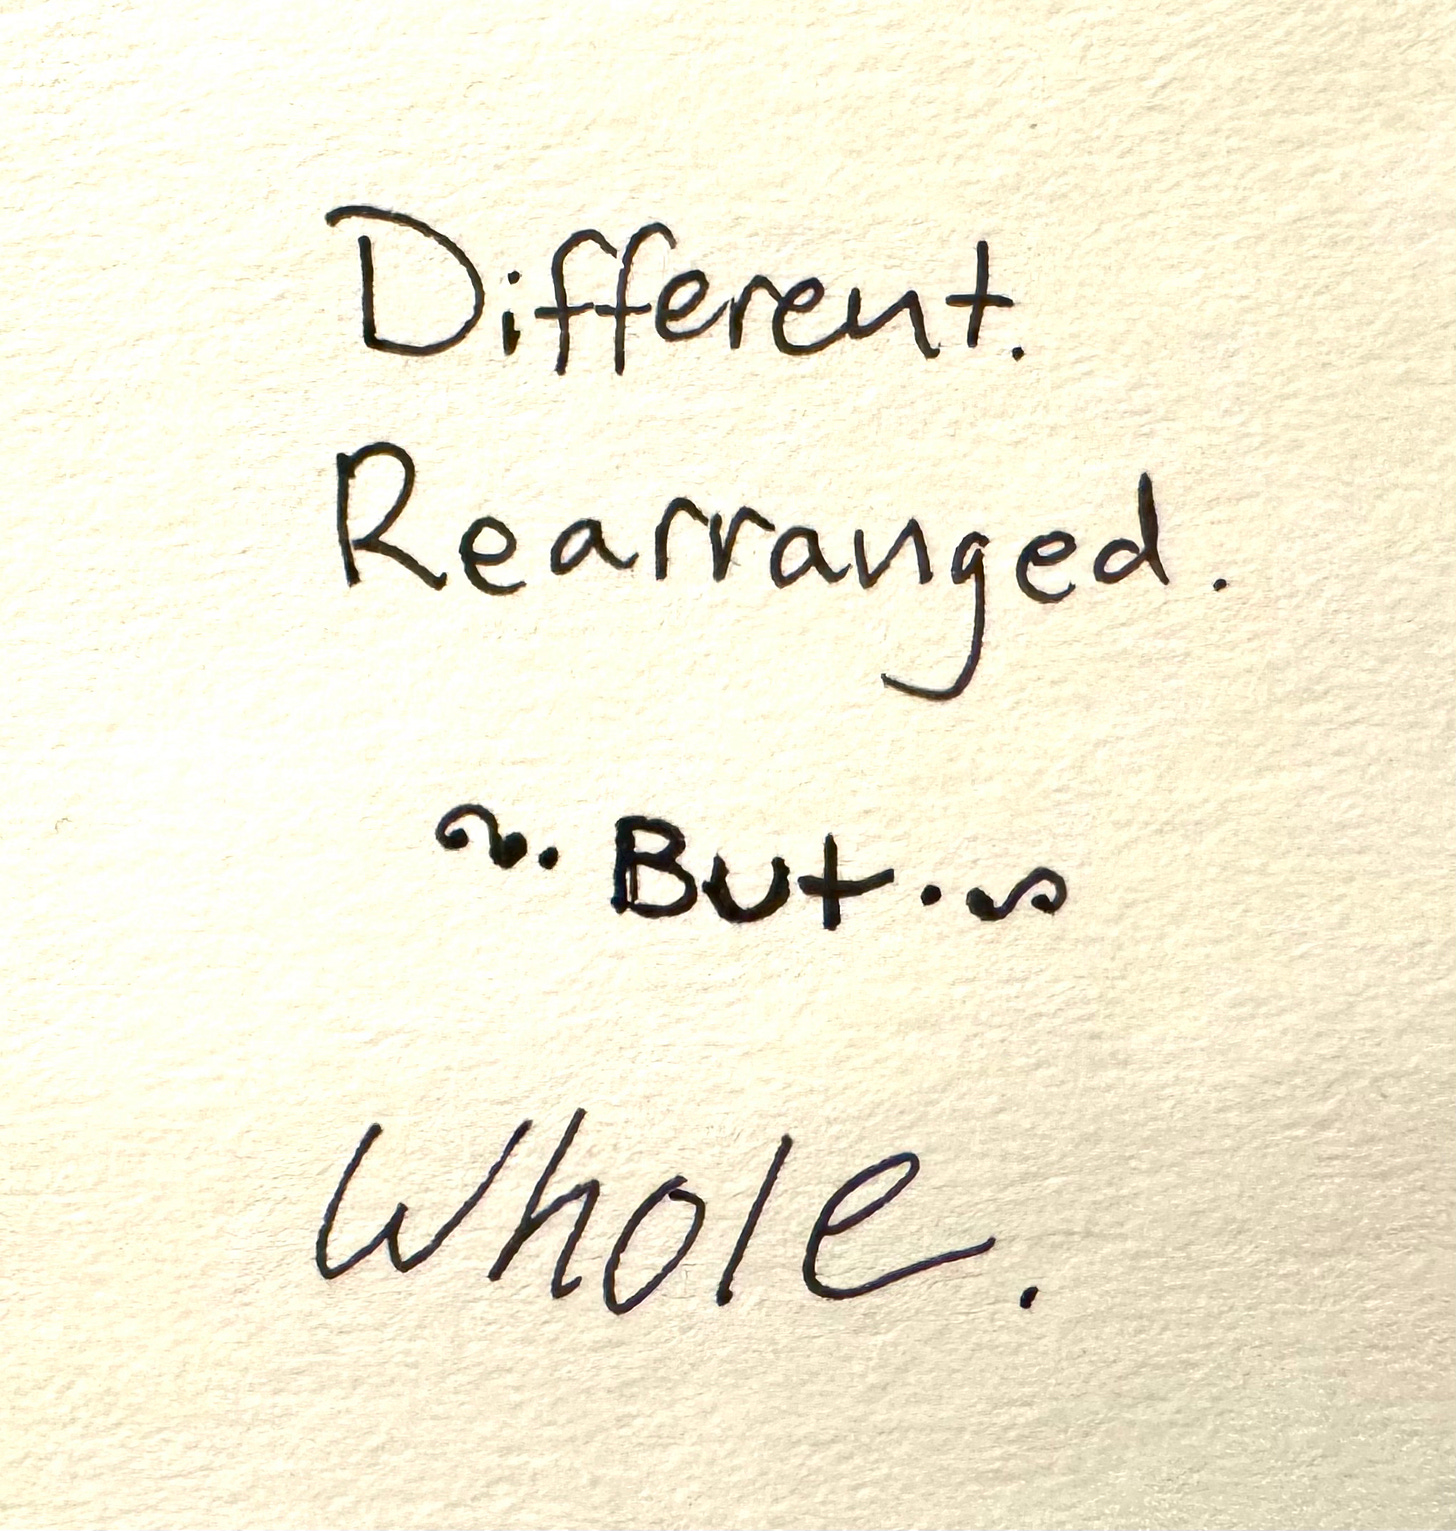 Different.
Rearranged.
~. But .~
Whole.